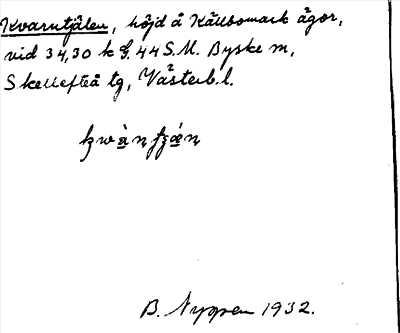 Kvarntjälen, höjd å Källbomark ägor,
vid 34,30 k G. 44 S.M. Byske m,
Skellefteå tg, Västerb.l.
B. Nygren 1932.